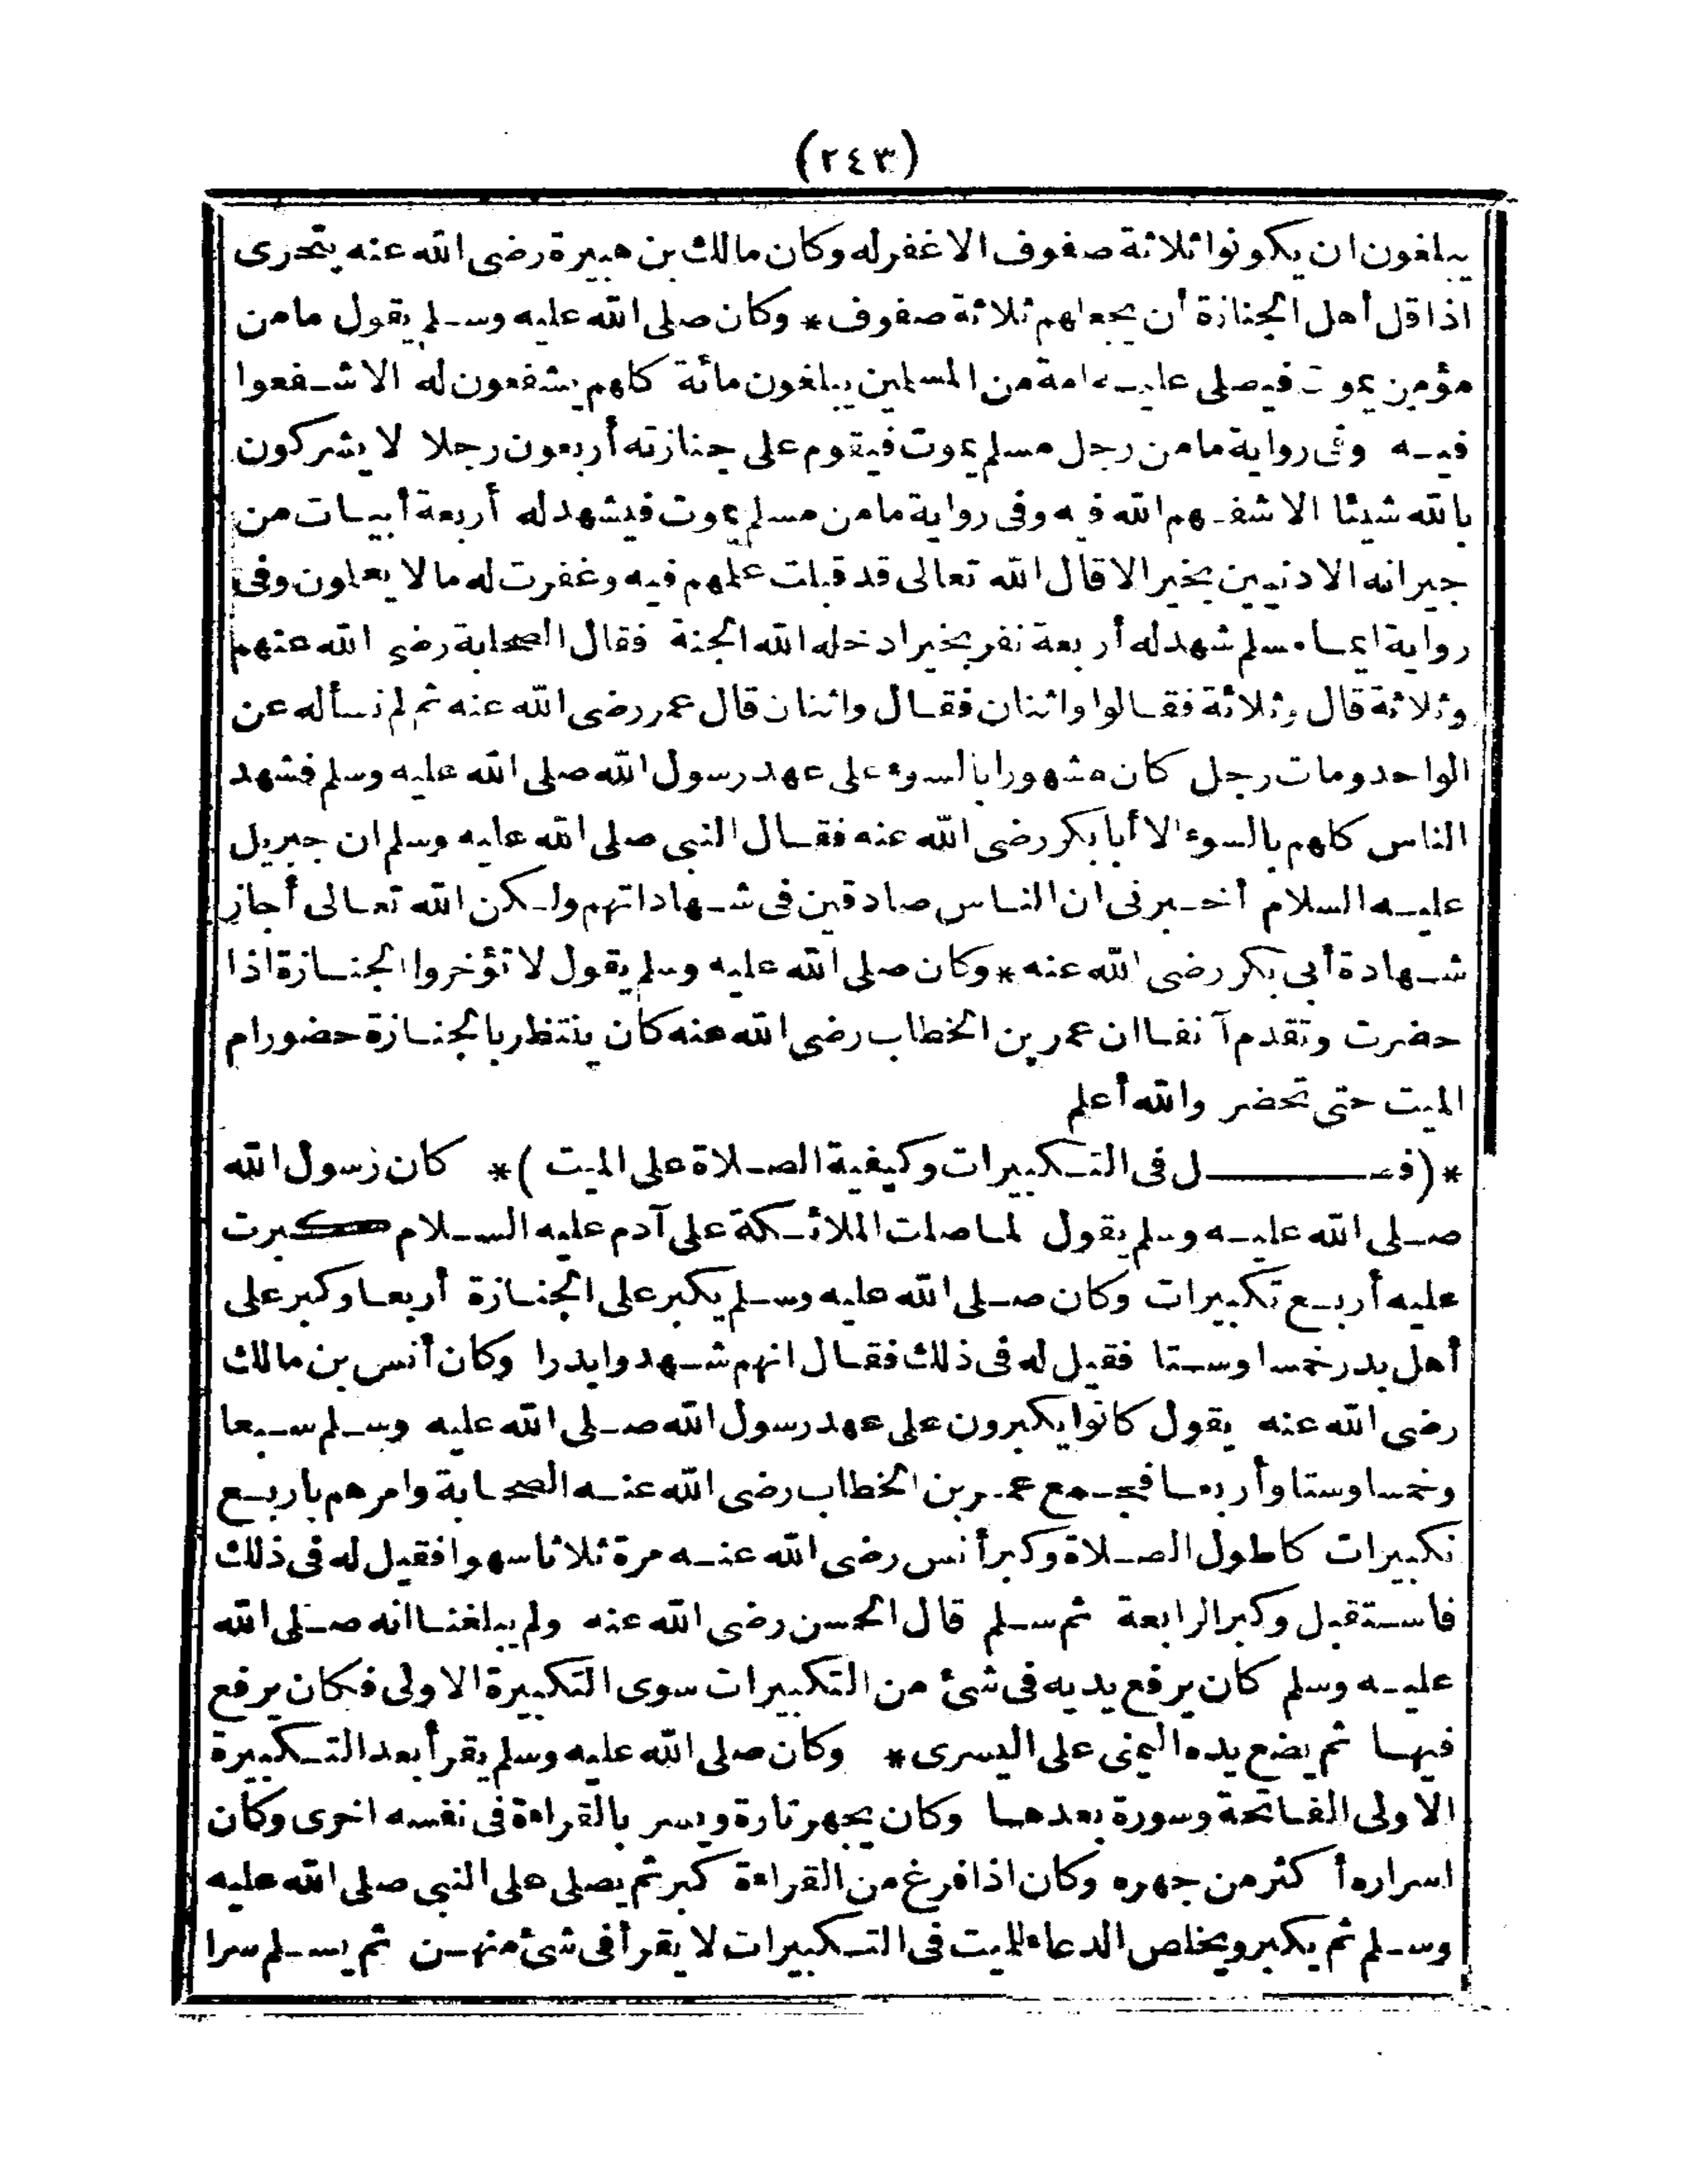 (٢٤٣)
يبلغون ان يكونوا ثلاثة صفوف الا غفر له وكان مالك بن هبيرة رضى الله عنه يتحرى
اذا قل أهل الجنازة أن يجعلهم ثلاثة صفوف * وكان صلى الله عليه وسلم يقول ما من
مؤمن يموت فيصلى عليه امة من المسلمين يبلغون مائة كلهم يشفعون له الا شفعوا
فيه وفى رواية ما من رجل مسلم يموت فيقوم على جنازته أربعون رجلا لا يشركون
بالله شيئا الا شفعهم الله فيه وفى رواية ما من مسلم يموت فيشهد له أربعة أبيات من
جيرانه الادنيين بخير الا قال الله تعالى قد قبلت علمهم فيه وغفرت له ما لا يعلون وفى
رواية ايما مسلم شهد له أربعة نفر بخير ادخله الله الجنة فقال الصحابة رضى الله عنهم
وثلاثة قال وثلاثة فقالوا واثنان فقال واثنان قال عمر رضى الله عنه ثم لم نسأله عن
الواحد ومات رجل كان مشهورا بالسوء على عهد رسول الله صلى الله عليه وسلم فشهد
الناس كلهم بالسوء الا أبا بكر رضى الله عنه فقال النبى صلى الله عليه وسلم ان جبريل
عليه السلام أخبرنى ان الناس صادقين فى شهاداتهم ولكن الله تعالى أجاز
شهادة أبى بكر رضى الله عنه * وكان صلى الله عليه وسلم يقول لا تؤخروا الجنازة اذا
حضرت وتقدم آنفا ان عمر بن الخطاب رضى الله عنه كان ينتظر بالجنازة حضور ام
الميت حتى تحضر والله أعلم
* (فصل فى التكبيرات وكيفية الصلاة على الميت) * كان رسول الله
صلى الله عليه وسلم يقول لما صلت الملائكة على آدم عليه السلام كبرت
عليه أربع تكبيرات وكان صلى الله عليه وسلم يكبر على الجنازة أربعا وكبر على
أهل بدر خمسا وستا فقيل له فى ذلك فقال انهم شهدوا بدرا وكان أنس بن مالك
رضى الله عنه يقول كانوا يكبرون على عهد رسول الله صلى الله عليه وسلم سبعا
وخمسا وستا وأربعا فجمع عمر بن الخطاب رضى الله عنه الصحابة وامرهم باربع
تكبيرات كاطول الصلاة وكبر أنس رضى الله عنه مرة ثلاثا سهوا فقيل له فى ذلك
فاستقبل وكبر الرابعة ثم سلم قال الحسن رضى الله عنه ولم يبلغنا انه صلى الله
عليه وسلم كان يرفع يديه فى شئ من التكبيرات سوى التكبيرة الاولى فكان يرفع
فيها ثم يضع يده اليمنى على اليسرى * وكان صلى الله عليه وسلم يقرأ بعد التكبيرة
الاولى الفاتحة وسورة بعدها وكان يجهر تارة ويسر بالقراءة فى نفسه اخرى وكان
اسراره أكثر من جهره وكان اذا فرغ من القراءة كبر ثم يصلى على النبى صلى الله عليه
وسلم ثم يكبر ويخلص الدعاء للميت فى التكبيرات لا يقرأ فى شئ منهن ثم يسلم سرا